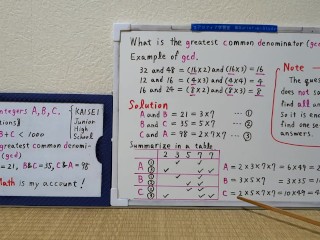 What is the greatest common denominator (gcd
Example of gcd.
32 and 48 = (16×2) and (16×3) = 16
12 and 16 = (4×3) and (4×4) = 4
16 and 24 = (8×2) and (8×3) = 8
Note
The ques
does not s
find all an
So it is eno
find one se
answers.
Solution
A and B = 21 = 3×7 --- ①
B and C = 35 = 5×7 --- ②
C and A = 98 = 2×7×7 --- ③
Summarize in a table
2 3 5 7 7
A ①
A ③
B ①
B ②
C ②
C ③
A = 2×3×7×7 = 6×49 = 2
B = 3×5×7 = 3×35 = 10
C = 2×5×7×7 = 10×49 = 4
integers A, B, C.
KAISEI
Junior
High
School
B+C < 1000
greatest common denomi-
(gcd)
= 21, B&C = 35, C&A = 98
Math is my account!